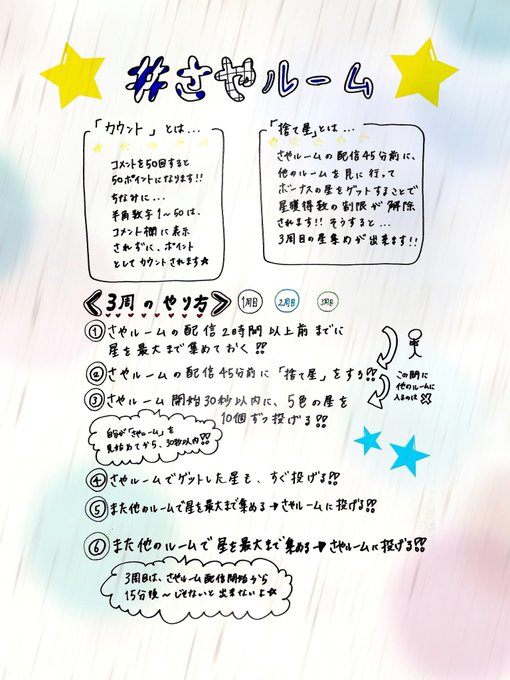 #さやルーム
「カウント」とは...
コメントを50回すると
50ポイントになります!!
ちなみに...
半角数字1~50は、
コメント欄に表示
されずに、ポイント
としてカウントされます☆
「捨て星」とは...
さやルームの配信45分前に、
他のルームを見に行って
ボーナスの星をゲットすることで
星獲得数の制限が解除
されます!!そうすると...
3周目の星集めが出来ます!!
《3周のやり方》 1周目 2周目 3周目
① さやルームの配信2時間以上前までに
星を最大まで集めておく!!
② さやルームの配信45分前に「捨て星」をする!!
この間に
他のルームに
入るのは✕
③ さやルーム開始30秒以内に、5色の星を
10個ずつ投げる!!
自分が「さやルーム」を
見始めてから、30秒以内!!
④ さやルームでゲットした星も、すぐ投げる!!
⑤ また他のルームで星を最大まで集める→さやルームに投げる!!
⑥ また他のルームで星を最大まで集める→さやルームに投げる!!
3周目は、さやルーム配信開始から
15分後~じゃないと出来ないよ☆